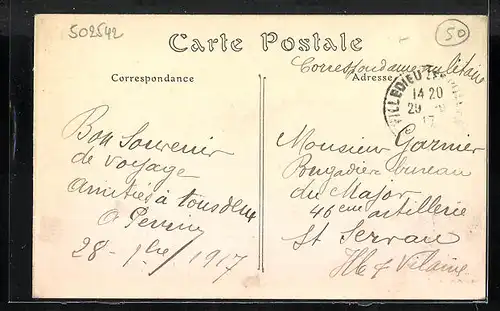 502542
50
Carte Postale
Correspondance militaire
Correspondance
Adresse
VILLEDIEU-LES-POÊLES
14 20
29
17
Bon Souvenir
de voyage
Amitiés à tous deux
28 - 1bre / 1917
Monsieur Garnier
Brigadier bureau
du Major
46eme artillerie
St Servan
Ille & Vilaine